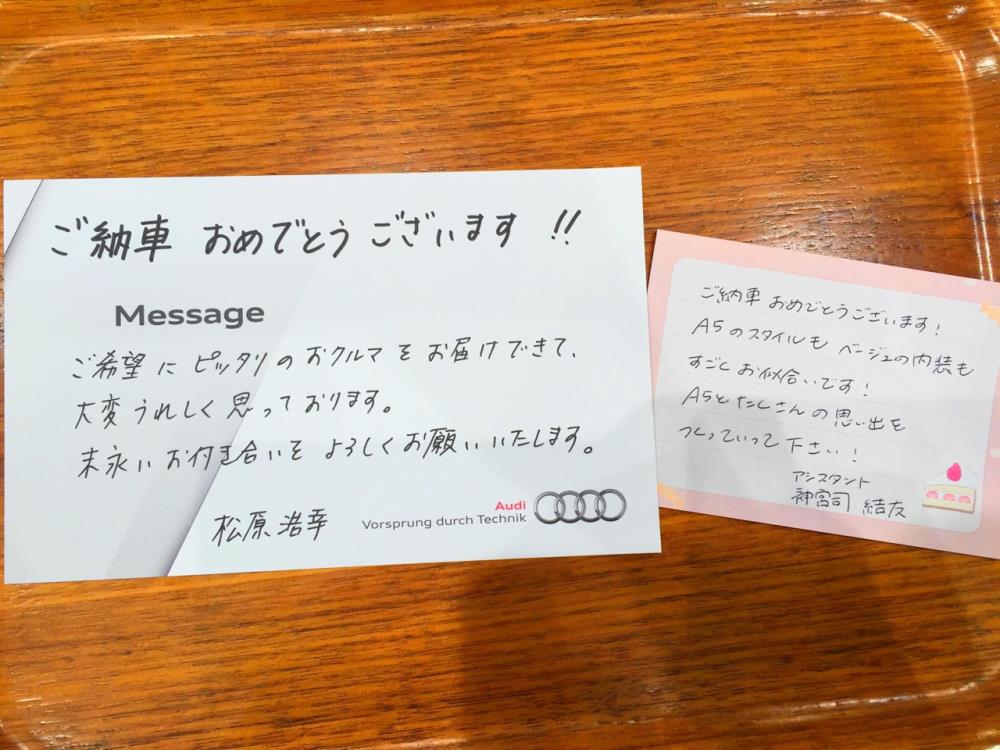 ご納車 おめでとうございます !!
Message
ご希望に ピッタリの おクルマを お届けできて、
大変うれしく思っております。
末永い お付き合いを よろしくお願いいたします。
松原 浩幸
Audi
Vorsprung durch Technik
ご納車 おめでとうございます!
A5のスタイルも ベージュの内装も
すごく お似合いです!
A5と たくさんの 思い出を
つくっていって 下さい!
アシスタント
神宮司 結友